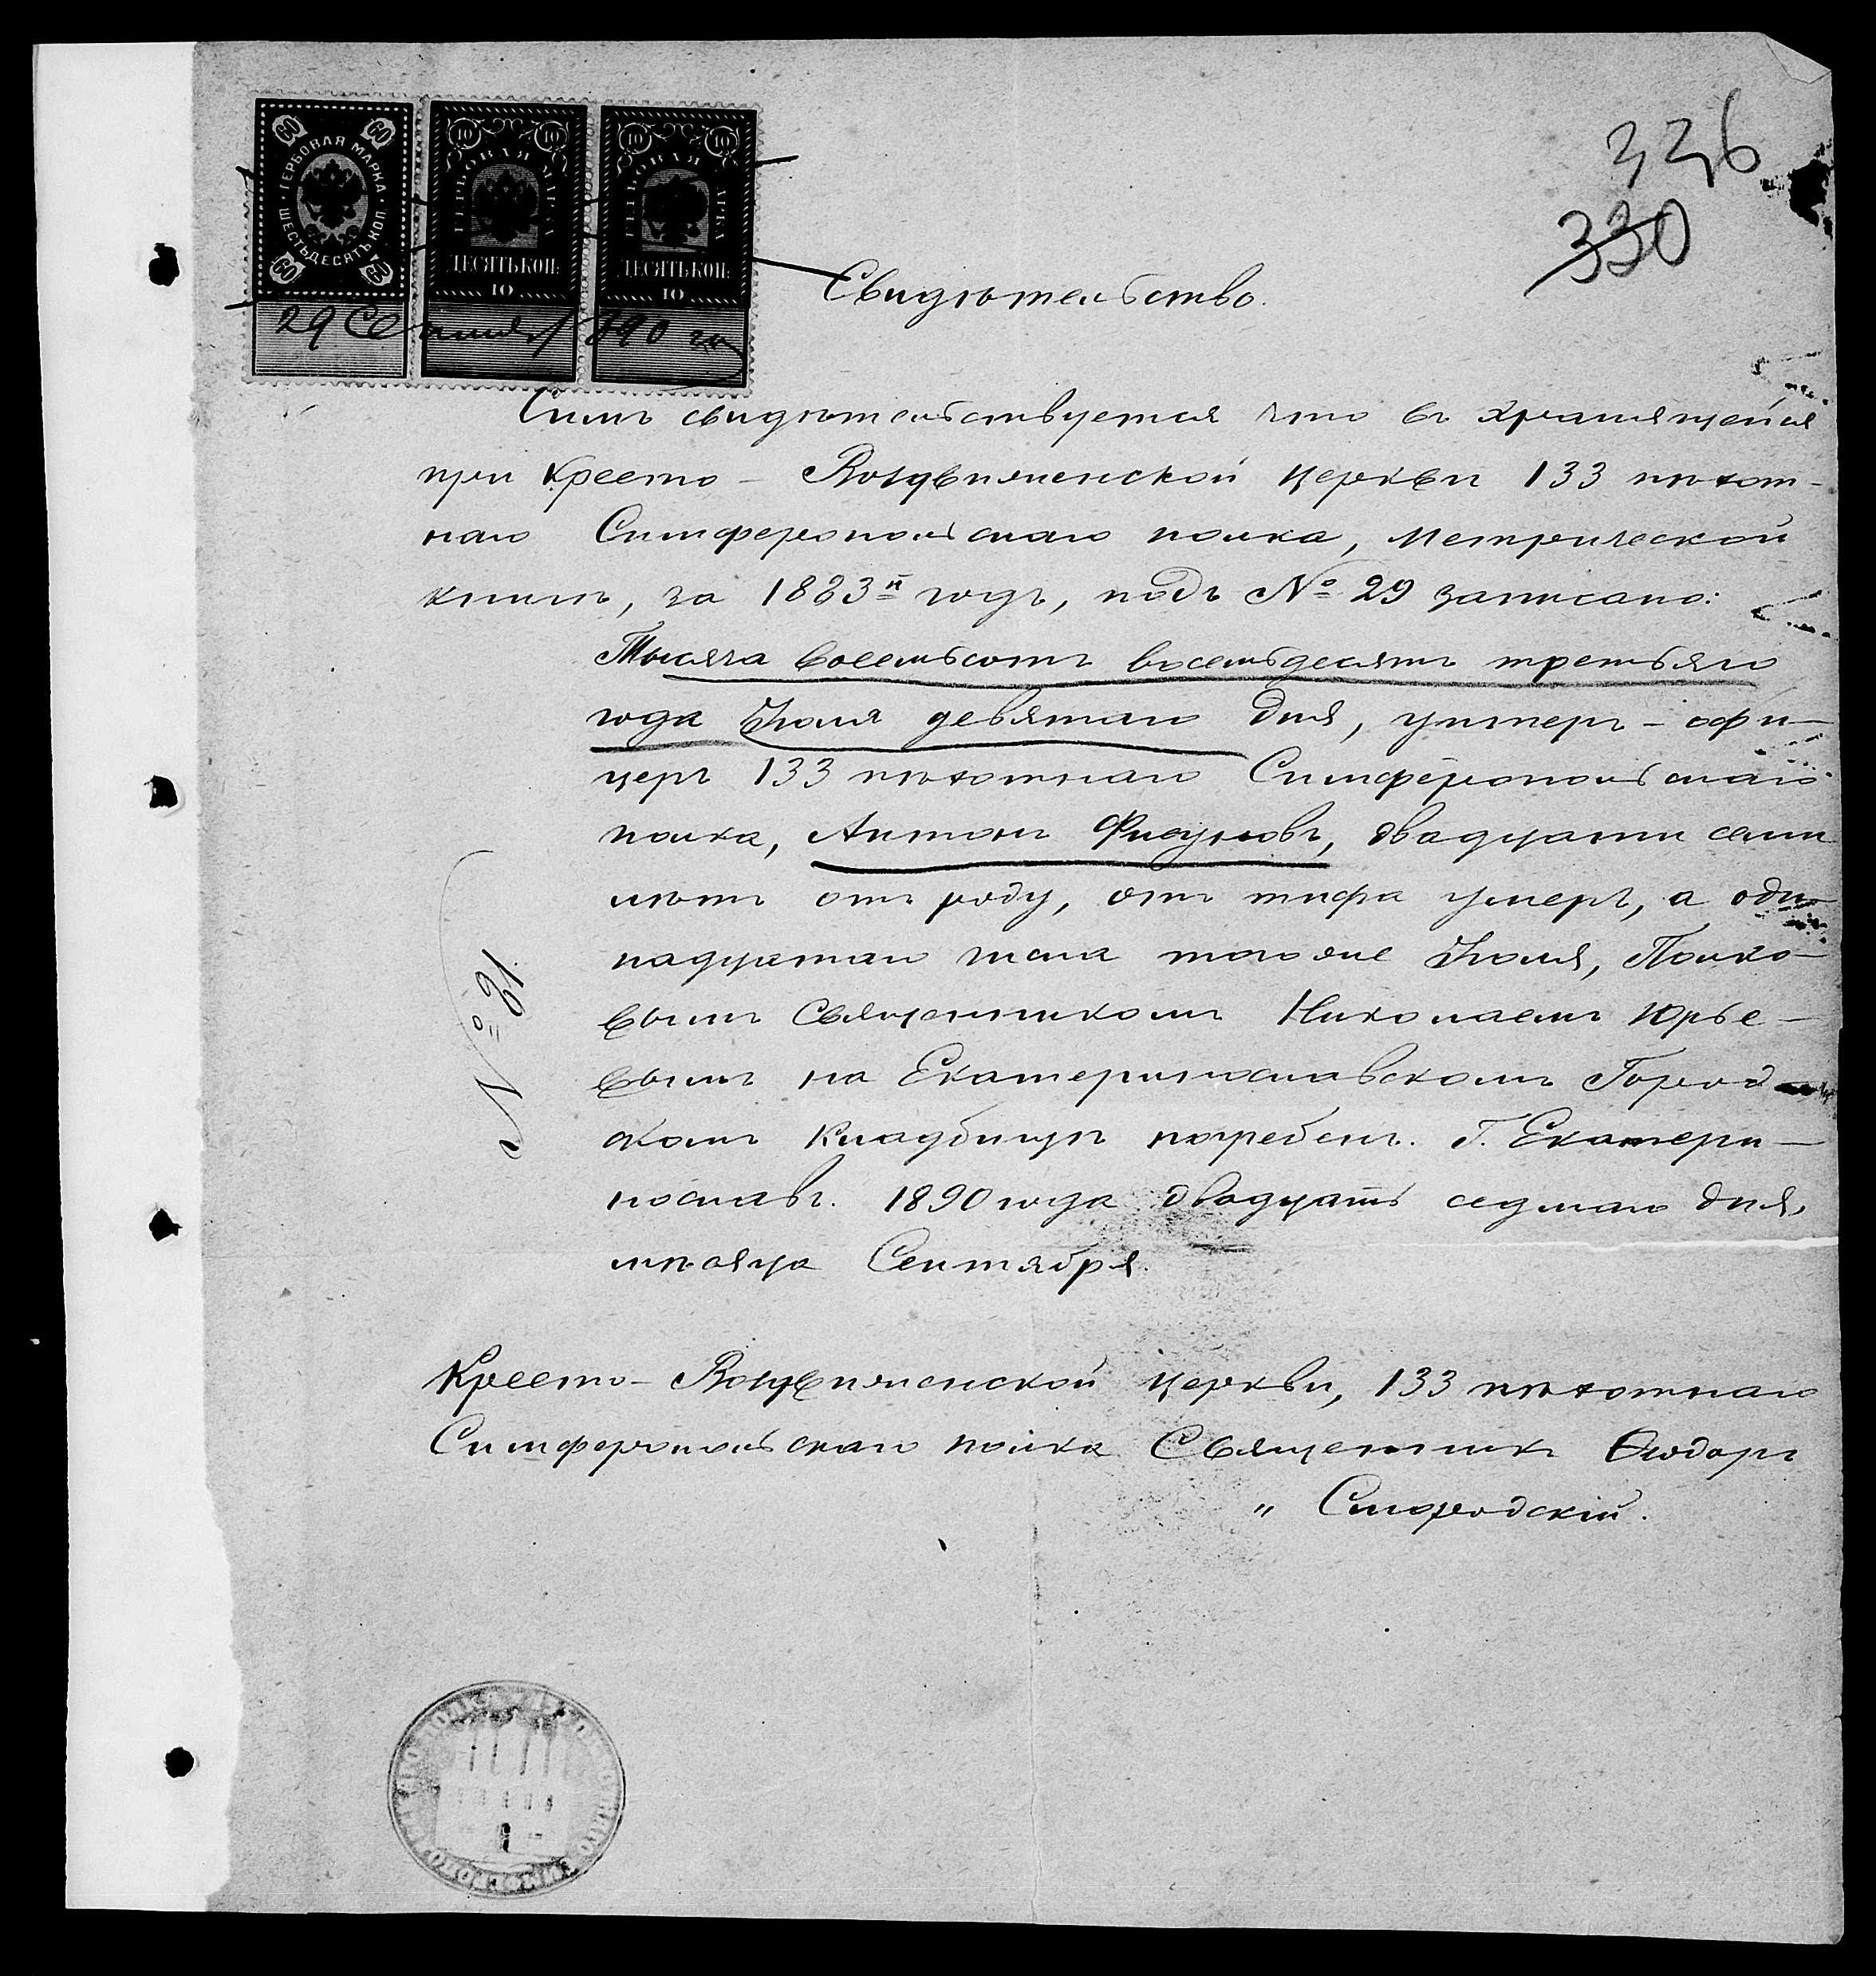 336
330
ГЕРБОВАЯ МАРКА
ШЕСТЬДЕСЯТЪ КОП.
60 60 60 60
ГЕРБОВАЯ МАРКА
10 10
ДЕСЯТЬ КОП:
10
ГЕРБОВАЯ МАРКА
10 10
ДЕСЯТЬ КОП:
10
29 Сентября 1890 го
Свидѣтельство.
Симъ свидѣтельствуется что въ хранящейся
при Кресто - Воздвиженской церкви 133 пѣхот-
наго Симферопольскаго полка, метрической
книгѣ, за 1883й годъ, подъ № 29 записано:
Тысяча восемьсотъ восемьдесятъ третьяго
года Іюля девятаго дня, унтеръ - офи-
церъ 133 пѣхотнаго Симферопольскаго
полка, Антонъ Фисуновъ, двадцати семи
лѣтъ отъ роду, отъ тифа умеръ, а оди-
надцатаго числа того же Іюля, Полко-
вымъ Священникомъ Николаемъ Юрье-
вымъ на Екатеринославскомъ Город-
скомъ кладбищѣ погребенъ. Г. Екатери-
нославъ. 1890 года двадцать седмаго дня,
мѣсяца Сентября.
№ 81
Кресто - Воздвиженской церкви, 133 пѣхотнаго
Симферопольскаго полка Священникъ Ѳеодоръ
" Смородскій.